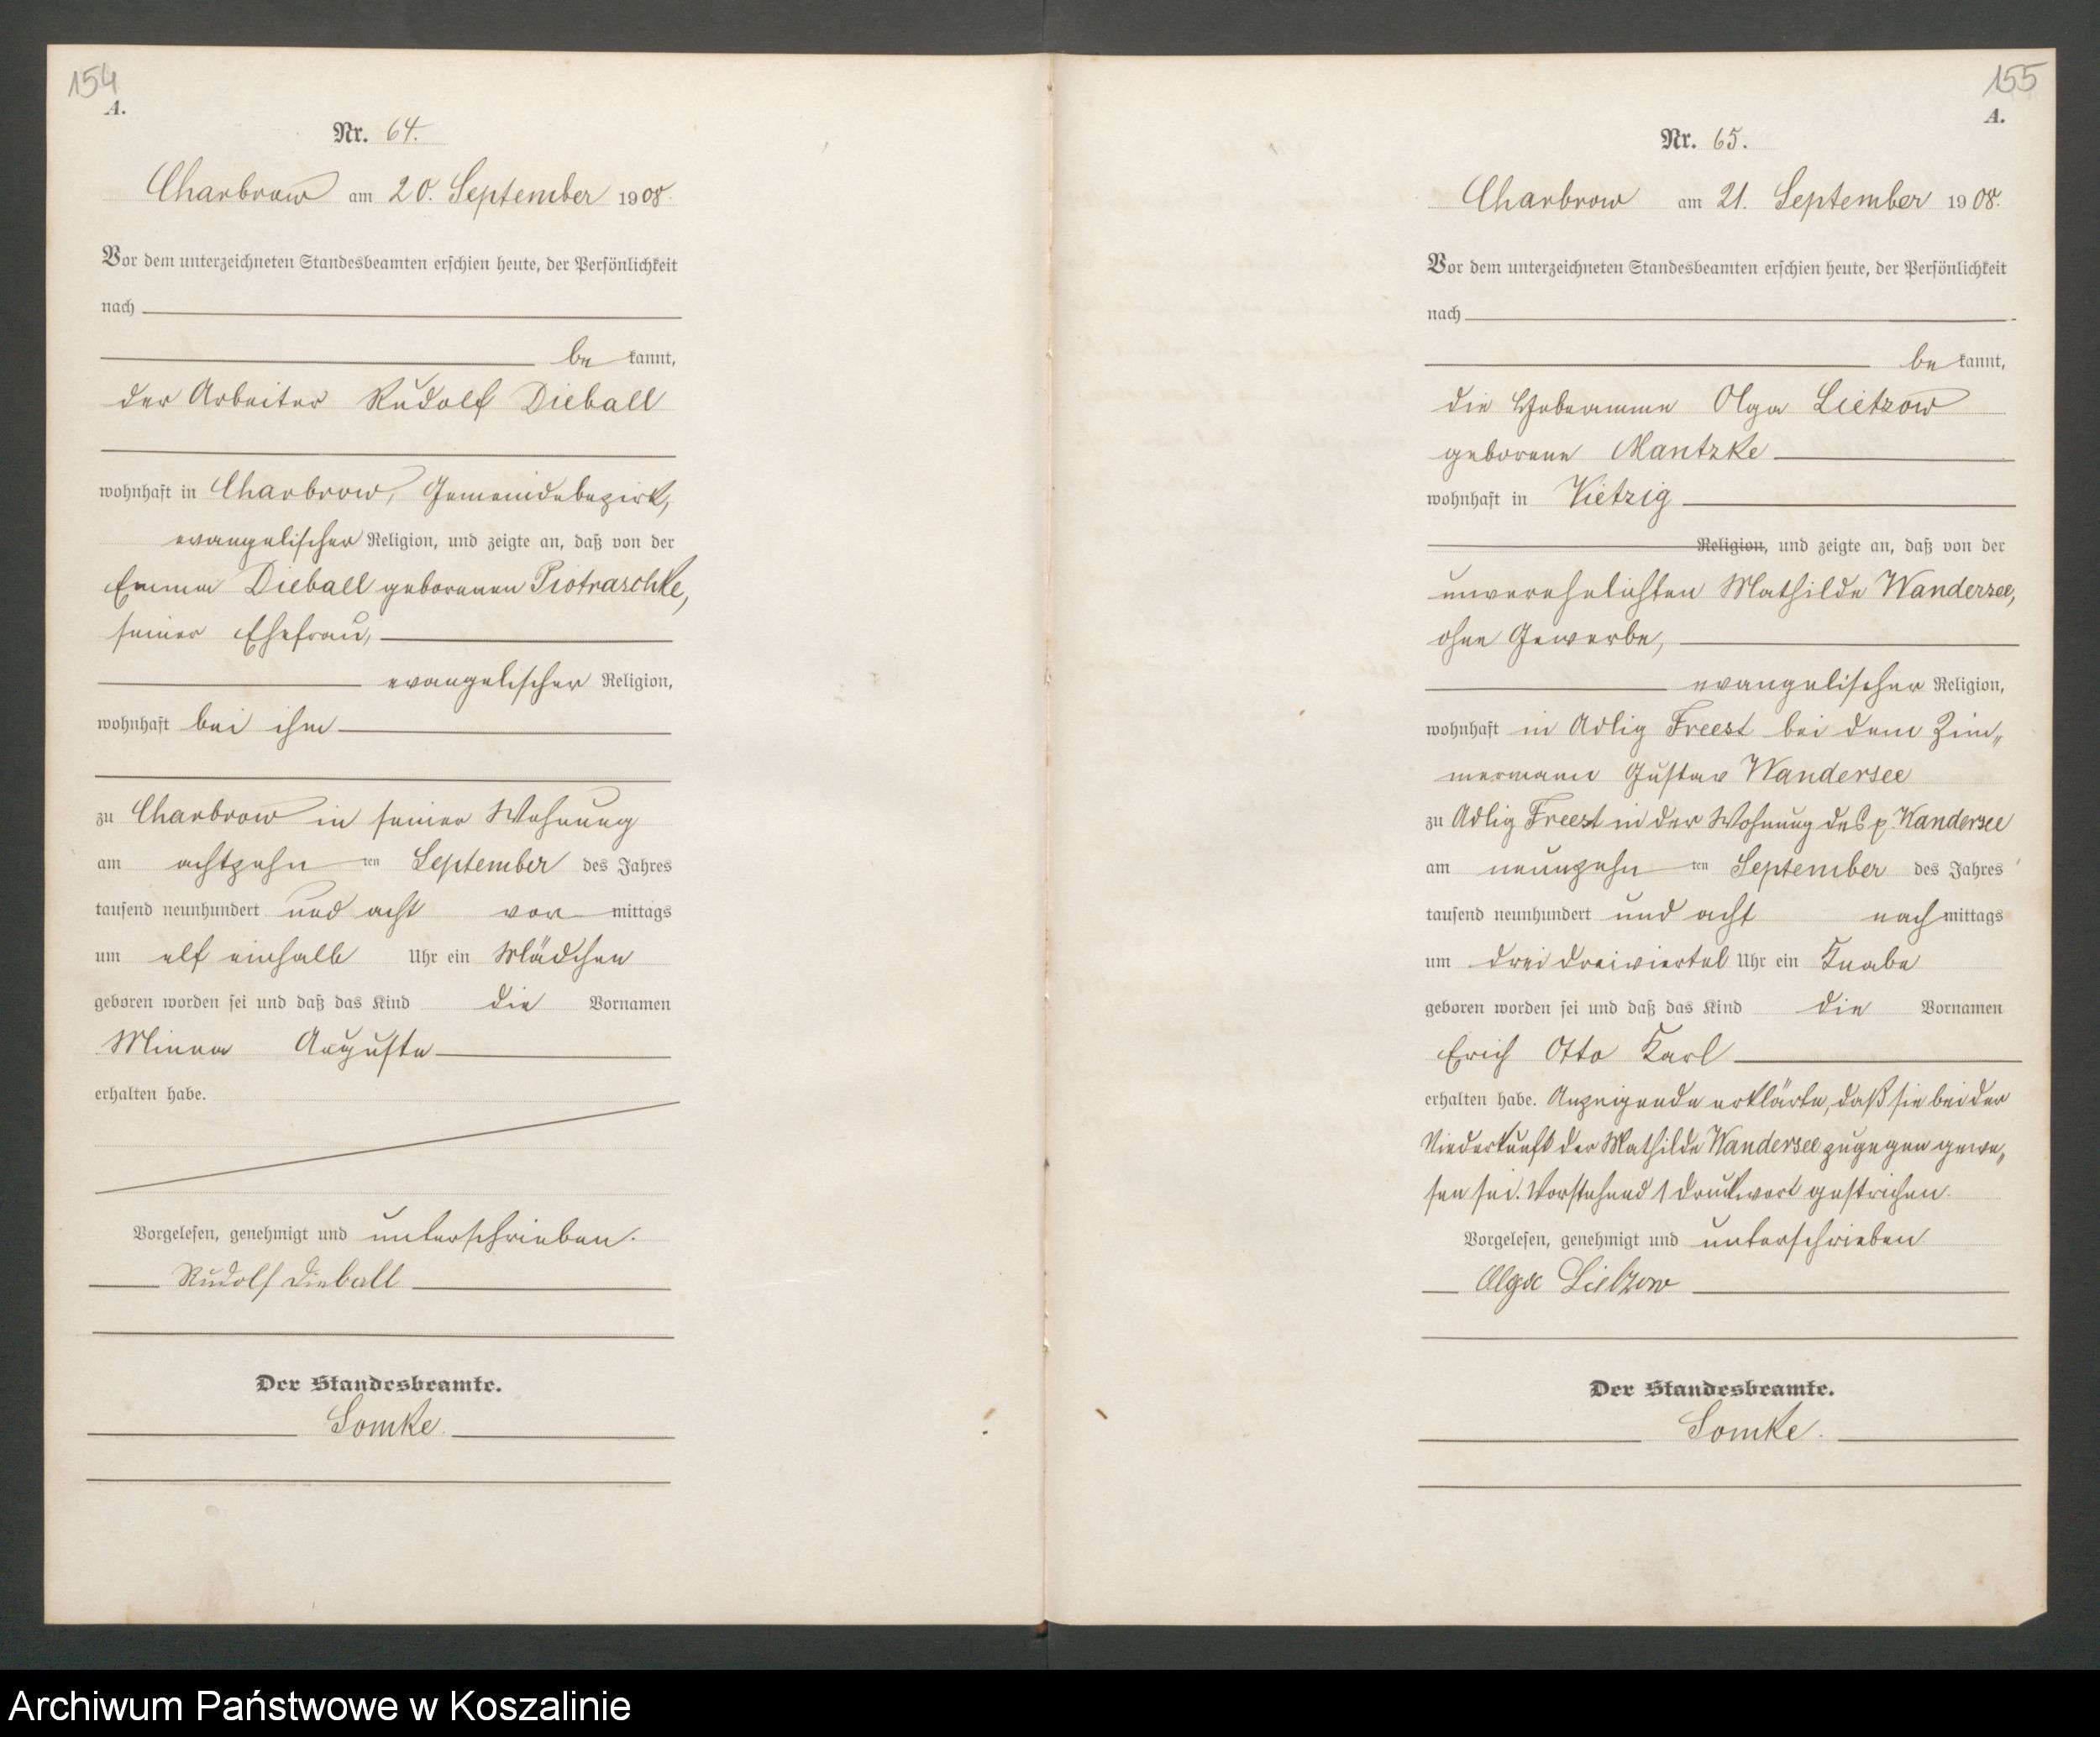 154
A.
Nr. 64.
Charbrow am 20. September 1908.
Vor dem unterzeichneten Standesbeamten erschien heute, der Persönlichkeit
nach
be kannt,
der Arbeiter Rudolf Dieball
wohnhaft in Charbrow, Gemeindebezirk,
evangelischer Religion, und zeigte an, daß von der
Emma Dieball geborenen Piotraschke,
seiner Ehefrau,
evangelischer Religion,
wohnhaft bei ihm
zu Charbrow in seiner Wohnung
am achtzehn ten September des Jahres
tausend neunhundert und acht vor mittags
um elf einhalb Uhr ein Mädchen
geboren worden sei und daß das Kind die Vornamen
Minna Auguste
erhalten habe.
Vorgelesen, genehmigt und unterschrieben.
Rudolf Dieball
Der Standesbeamte.
Somke.
155
A.
Nr. 65.
Charbrow am 21. September 1908.
Vor dem unterzeichneten Standesbeamten erschien heute, der Persönlichkeit
nach
be kannt,
die Hebeamme Olga Lietzow
geborene Mantzke
wohnhaft in Vietzig
Religion, und zeigte an, daß von der
unverehelichten Mathilde Wandersee,
ohne Gewerbe,
evangelischer Religion,
wohnhaft in Adlig Freest bei dem Zim„
mermann Gustav Wandersee
zu Adlig Freest in der Wohnung des p. Wandersee
am neunzehn ten September des Jahres
tausend neunhundert und acht nach mittags
um drei dreiviertel Uhr ein Knabe
geboren worden sei und daß das Kind die Vornamen
Erich Otto Karl
erhalten habe. Anzeigende erklärte, daß sie bei der
Niederkunft der Mathilde Wandersee zugegen gewe„
sen sei. Vorstehend 1 Druckwort gestrichen.
Vorgelesen, genehmigt und unterschrieben
Olga Lietzow
Der Standesbeamte.
Somke.
Archiwum Państwowe w Koszalinie